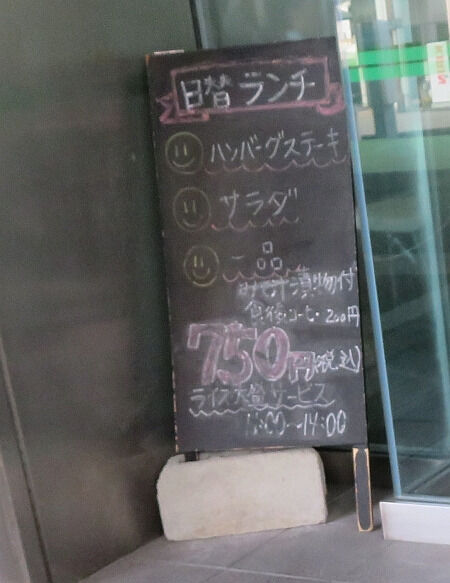 日替ランチ
ハンバーグステーキ
サラダ
一品
みそ汁漬物付
食後・コーヒー 200円
750円(税込)
ライス大盛サービス
11:00~14:00